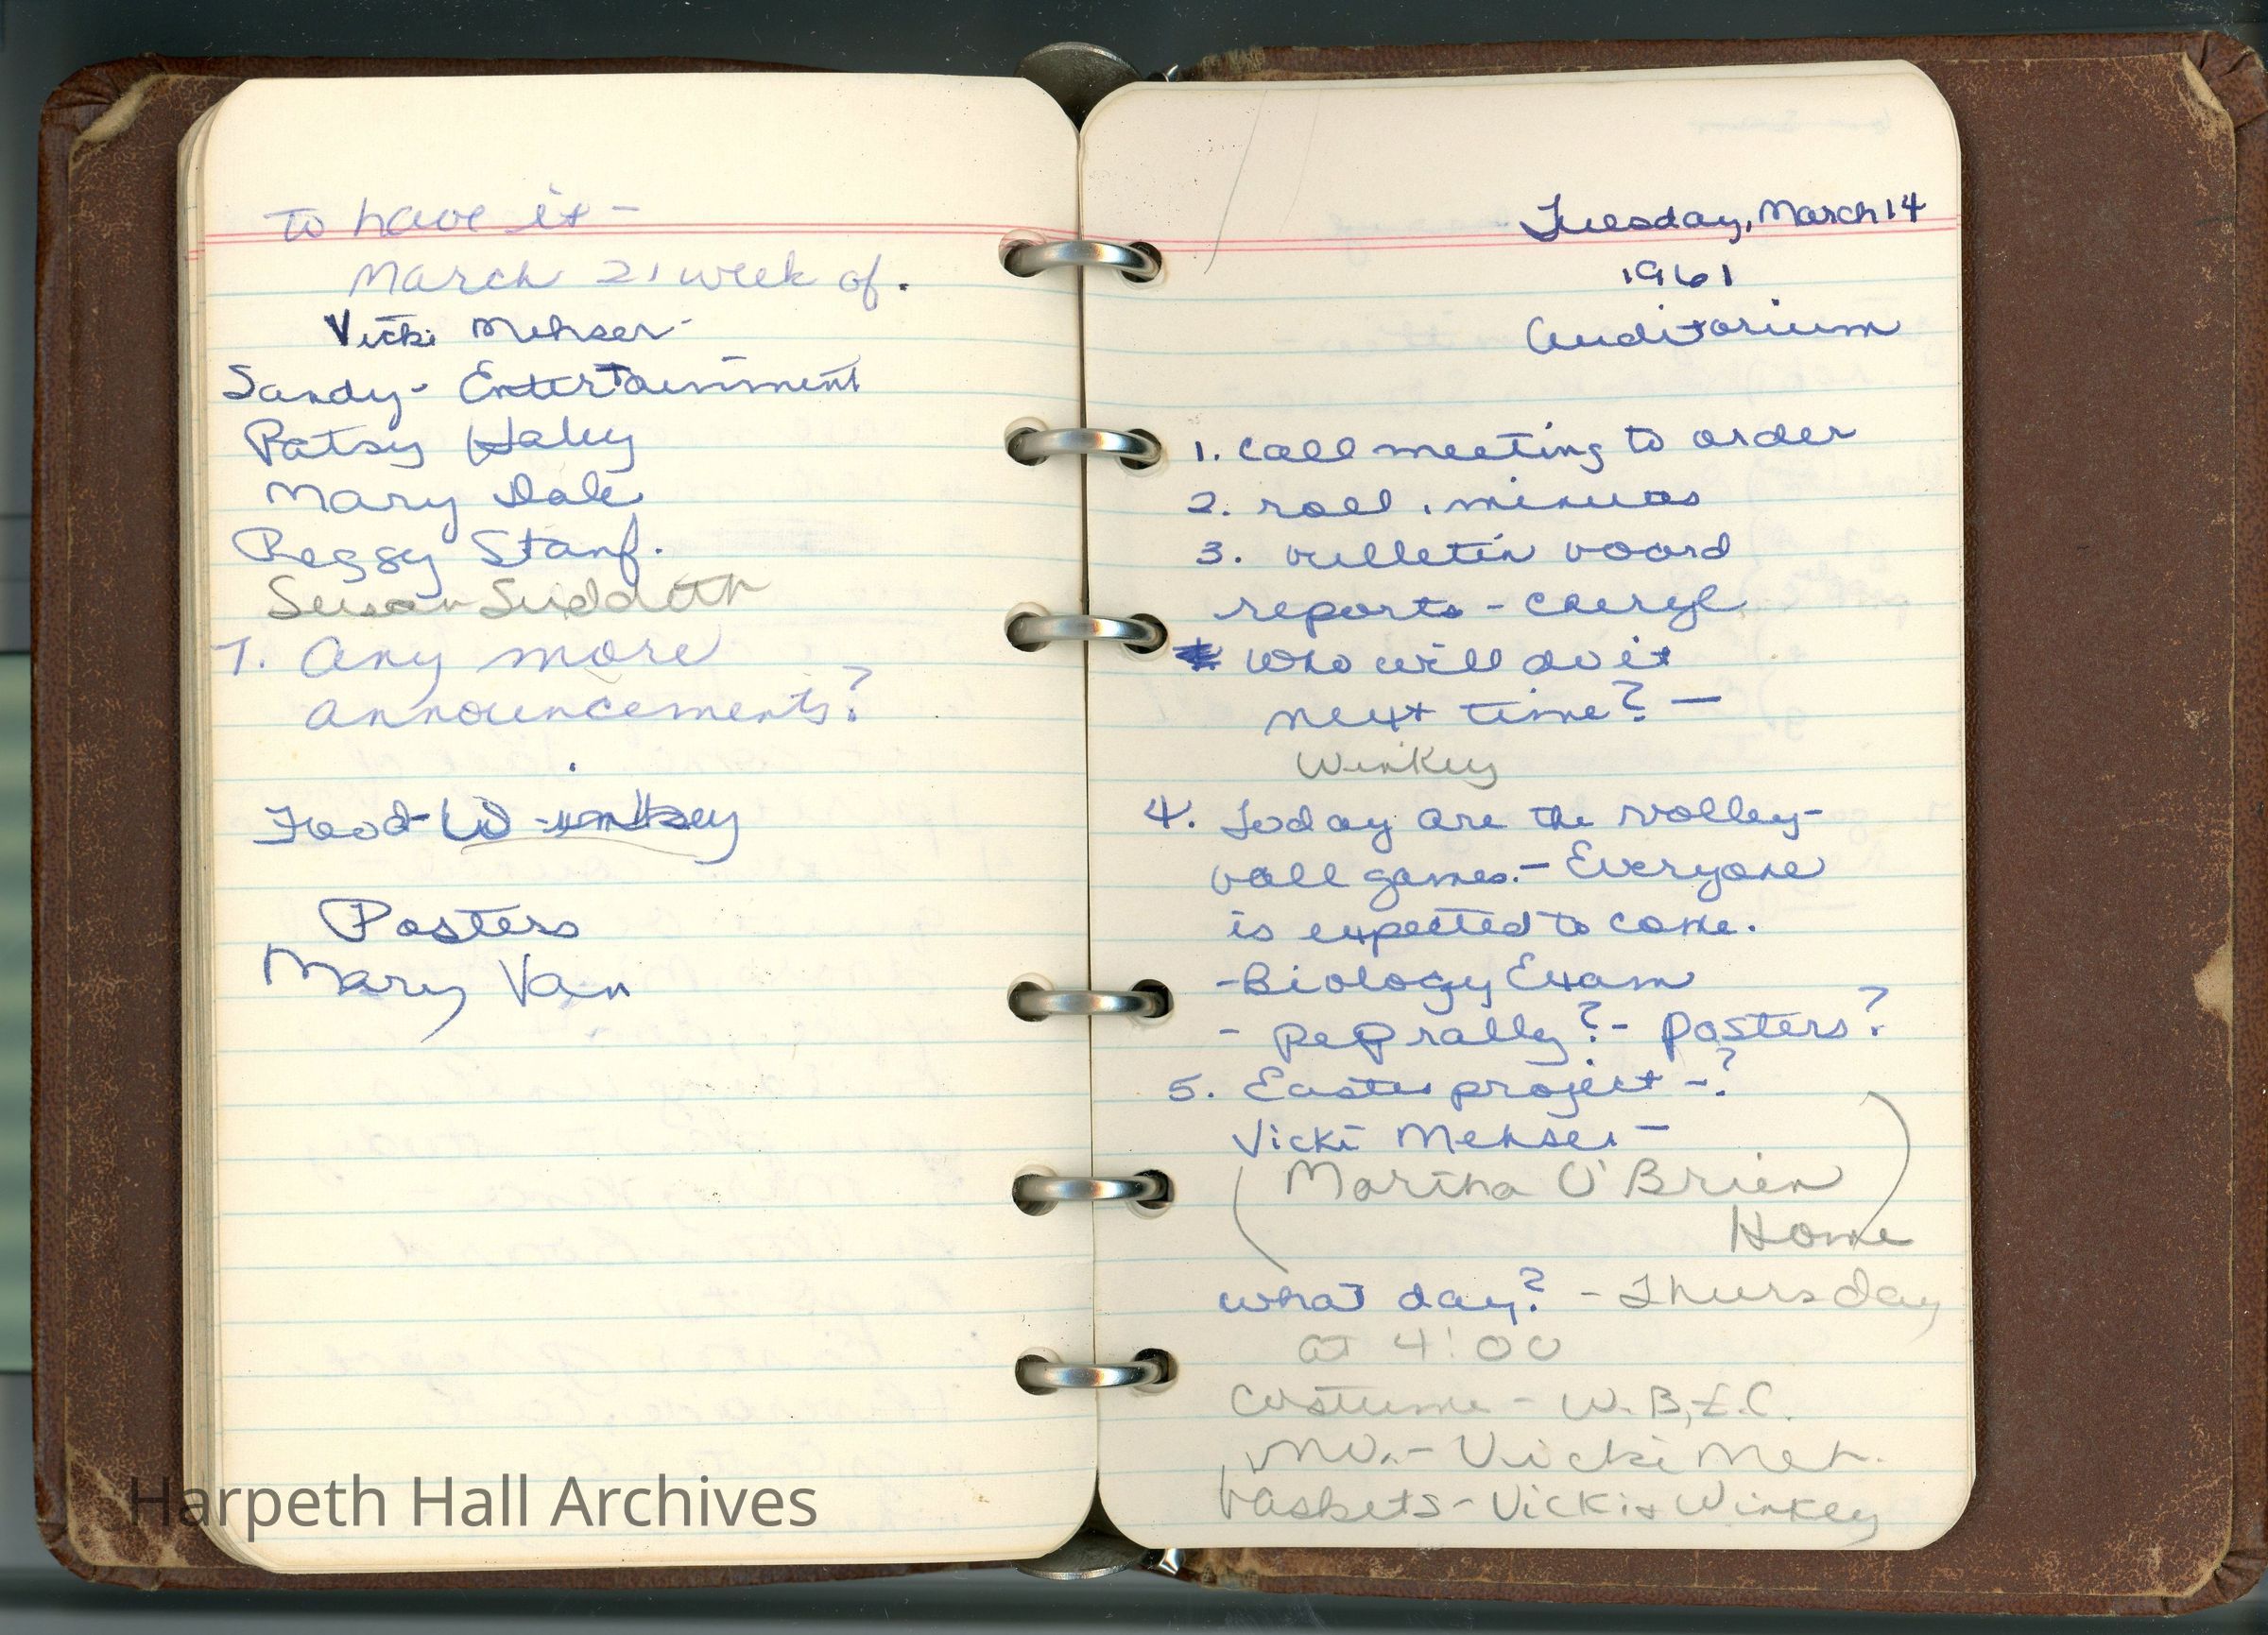 to have it -
March 21 week of.
Vicki Mehser -
Sandy - Entertainment
Patsy Haley
Mary Dale
Peggy Stanf.
Susan Suddath
7. Any more
announcements?
Food - Winkey
Posters
Mary Van
Harpeth Hall Archives
Tuesday, March 14
1961
Auditorium
1. call meeting to order
2. roll, minutes
3. bulletin board
reports - Cheryl
* Who will do it
next time? -
Winkey
4. Today are the volley-
ball games. - Everyone
is expected to come.
- Biology Exam
- pep rally? - posters?
5. Easter project - ?
Vicki Mehser -
(Martha O'Brien
Home)
what day? - Thursday
at 4:00
Costume - W. B, E.C.
- Vicki Meh.
baskets - Vicki + Winkey